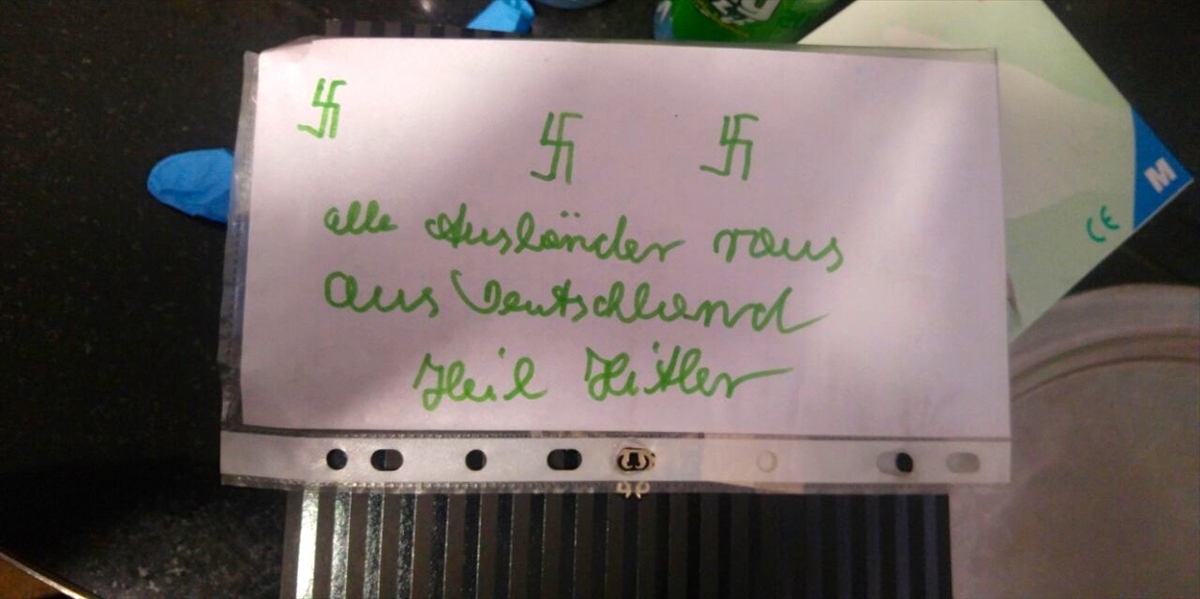 alle Ausländer raus
aus Deutschland
Heil Hitler
M
CE